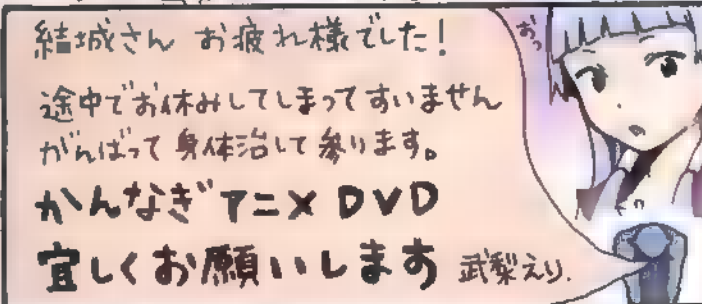 結城さん お疲れ様でした!
途中でお休みしてしまってすいません
がんばって身体治して参ります。
かんなぎアニメDVD
宜しくお願いします 武梨えり.
おっ